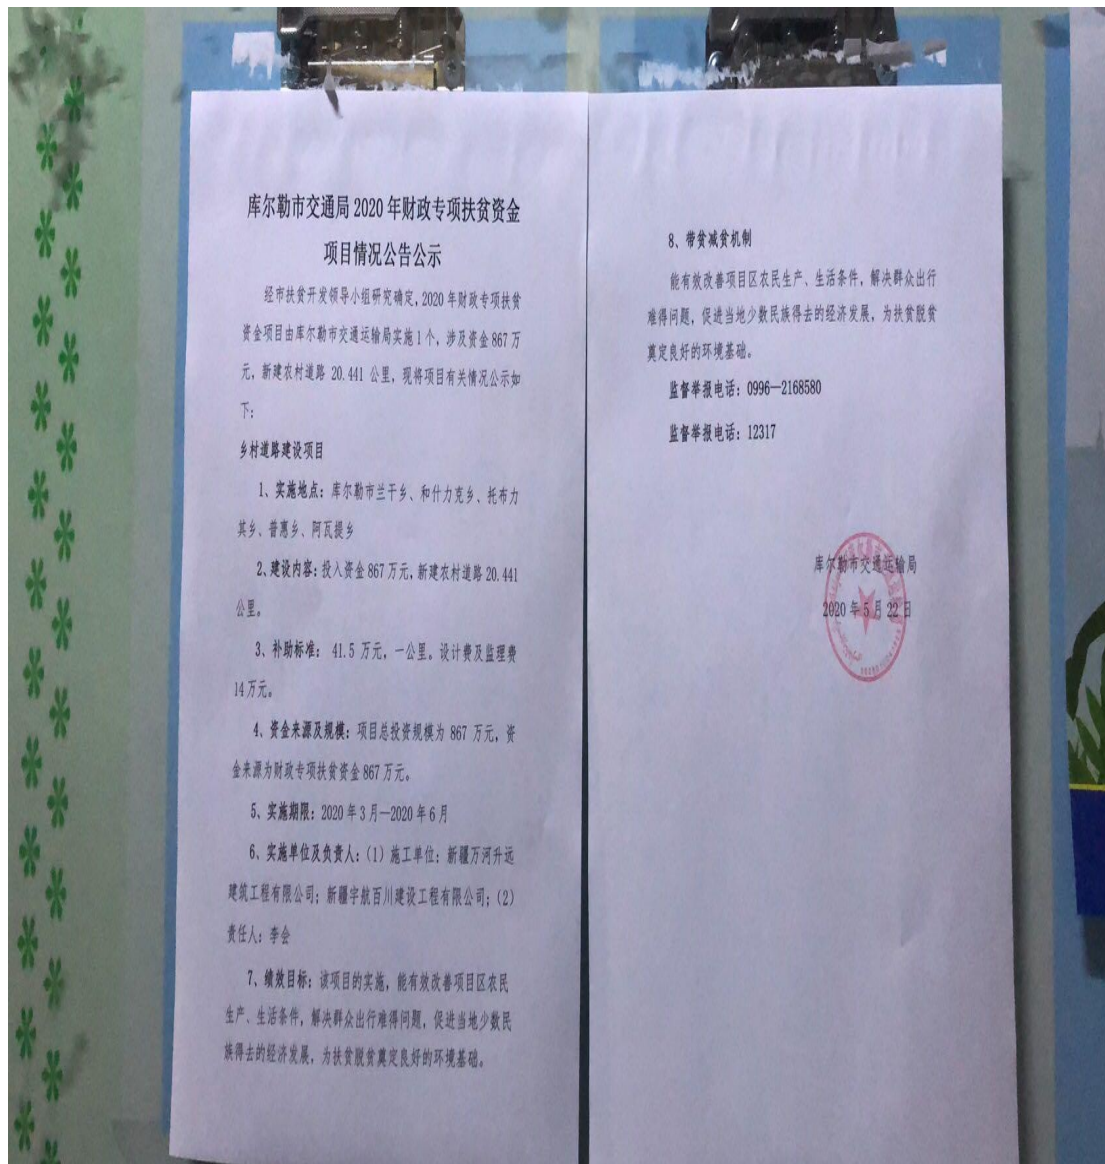 库尔勒市交通局2020年财政专项扶贫资金
项目情况公告公示
经市扶贫开发领导小组研究确定,2020年财政专项扶贫
资金项目由库尔勒市交通运输局实施1个,涉及资金867万
元,新建农村道路 20.441 公里,现将项目有关情况公示如
下:
乡村道路建设项目
1、实施地点:库尔勒市兰干乡、和什力克乡、托布力
其乡、普惠乡、阿瓦提乡
2、建设内容:投入资金867万元,新建农村道路20.441
公里。
3、补助标准: 41.5 万元,一公里。设计费及监理费
14万元。
4、资金来源及规模:项目总投资规模为 867 万元,资
金来源为财政专项扶贫资金867万元。
5、实施期限:2020年3月—2020年6月
6、实施单位及负责人:(1)施工单位:新疆万河升远
建筑工程有限公司;新疆宇航百川建设工程有限公司;(2)
责任人:李会
7、绩效目标:该项目的实施,能有效改善项目区农民
生产、生活条件,解决群众出行难得问题,促进当地少数民
族得去的经济发展,为扶贫脱贫奠定良好的环境基础。
8、带贫减贫机制
能有效改善项目区农民生产、生活条件,解决群众出行
难得问题,促进当地少数民族得去的经济发展,为扶贫脱贫
奠定良好的环境基础。
监督举报电话:0996—2168580
监督举报电话:12317
库尔勒市交通运输局
2020年5月22日